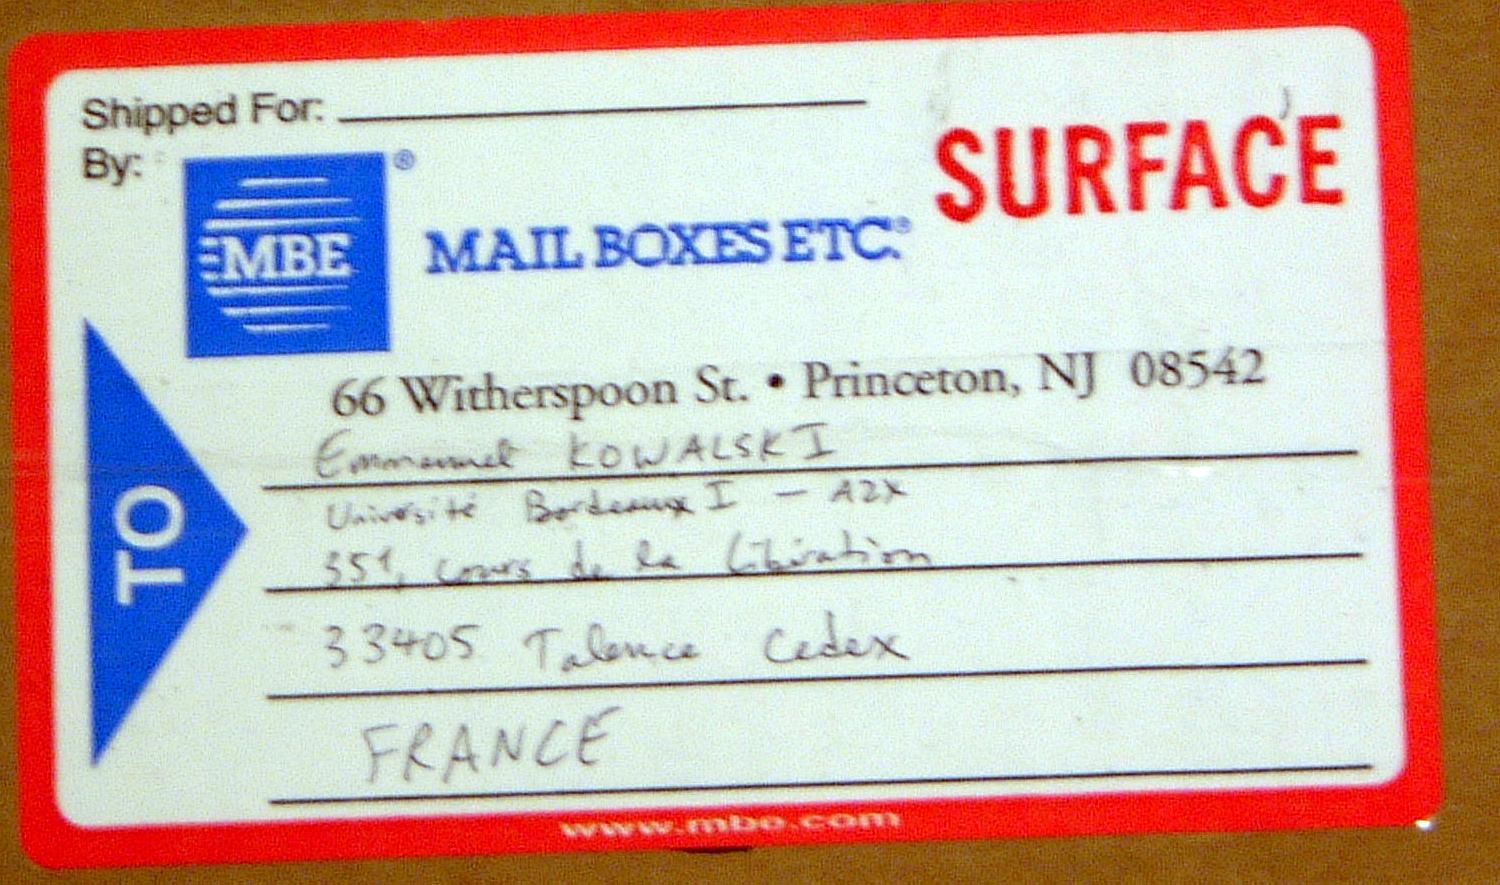 Shipped For:
SURFACE
By:
MBE®
MAIL BOXES ETC.®
66 Witherspoon St. • Princeton, NJ 08542
TO
Emmanuel KOWALSKI
Université Bordeaux I – A2X
351, cours de la Libération
33405 Talence Cedex
FRANCE
www.mbe.com